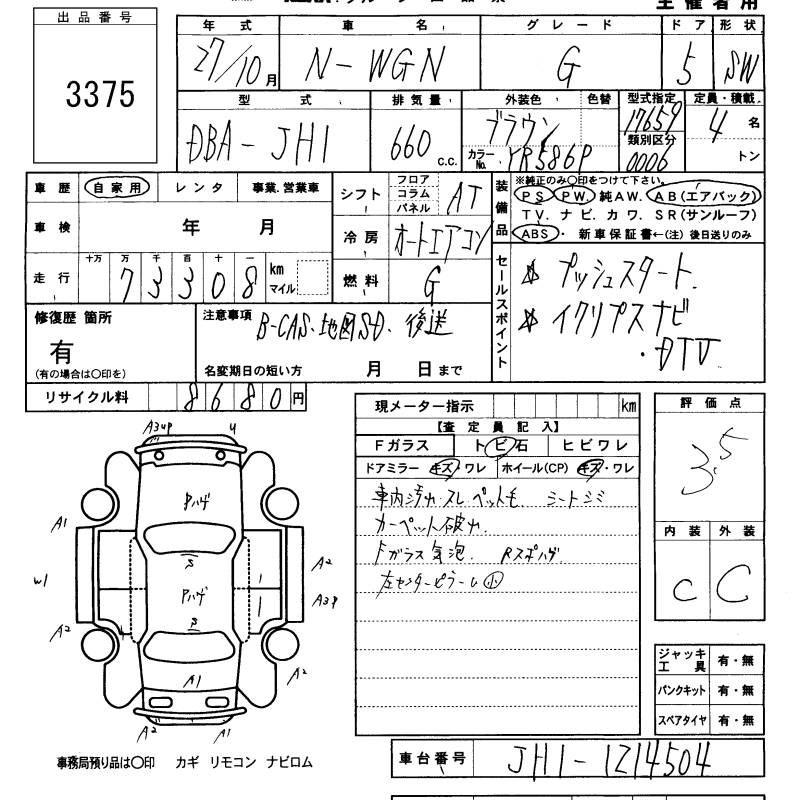 主催者用
出品番号
3375
年式 車名 グレード ドア 形状
27/10月 N-WGN G 5 SW
型式 排気量 外装色 色替 型式指定 定員・積載
DBA-JH1 660 c.c. ブラウン 17659 4名
カラーNo. YR586P 類別区分 0006 トン
車歴 自家用 レンタ 事業.営業車
車検 年 月
走行 十万 万 千 百 十 一
73308 km マイル
シフト フロア コラム パネル AT
冷房 オートエアコン
燃料 G
装備品
※純正のみ○印をつけて下さい。
PS PW 純AW. AB(エアバック)
TV. ナビ. カワ. SR(サンルーフ)
ABS・新車保証書←(注)後日送りのみ
セールスポイント
☆ プッシュスタート.
☆ イクリプスナビ
・DTV
修復歴 箇所
有
(有の場合は○印を)
注意事項
B-CAS・地図SD. 後送
名変期日の短い方 月 日まで
リサイクル料 8680円
現メーター指示 km
【査定員記入】
Fガラス トビ石 ヒビワレ
ドアミラー キズ・ワレ ホイール(CP) キズ・ワレ
車内汚れ・スレ ペット毛. シートシミ
カーペット破れ
Fガラス気泡. Rスポハゲ
左センターピラーU小
評価点
3.5
内装 外装
C C
A3UP U
Pハゲ
A1
S
A2
W1
Pハゲ
A3P
S
A2 A2
A1
A2 A1
ジャッキ工具 有・無
パンクキット 有・無
スペアタイヤ 有・無
事務局預り品は○印 カギ リモコン ナビロム
車台番号 JH1-1214504